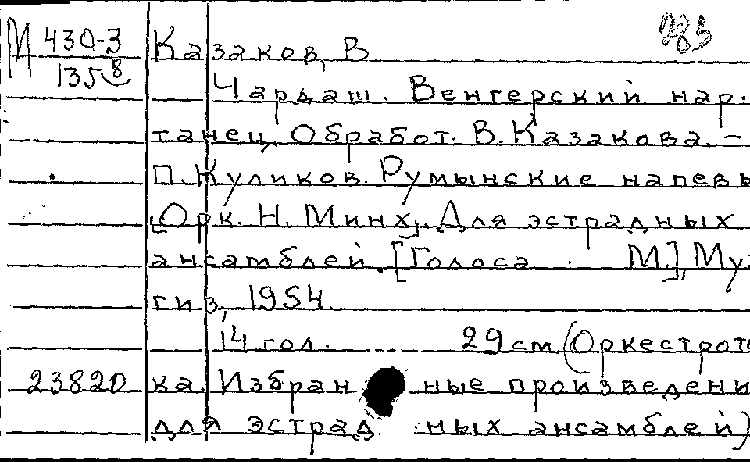 М 430-3 Казаков, В
1358
Чардаш. Венгерский нар.
танец, Обработ. В. Казакова. –
П. Куликов. Румынские напевы
[Орк. Н. Минх]. Для эстрадных
ансамблей. [Голоса М.], Муз
гиз, 1954.
14 гол. 29 см (Оркестрот
23820 ка. Избран ные произведени
для эстрад ных ансамблей)